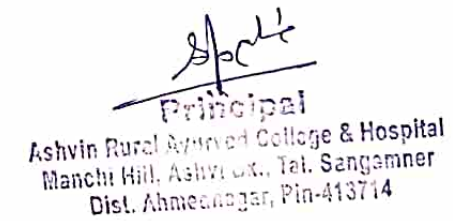 Principal
Ashvin Rural Ayurved College & Hospital
Manchi Hill, Ashvi Bk., Tal. Sangamner
Dist. Ahmednagar, Pin-413714